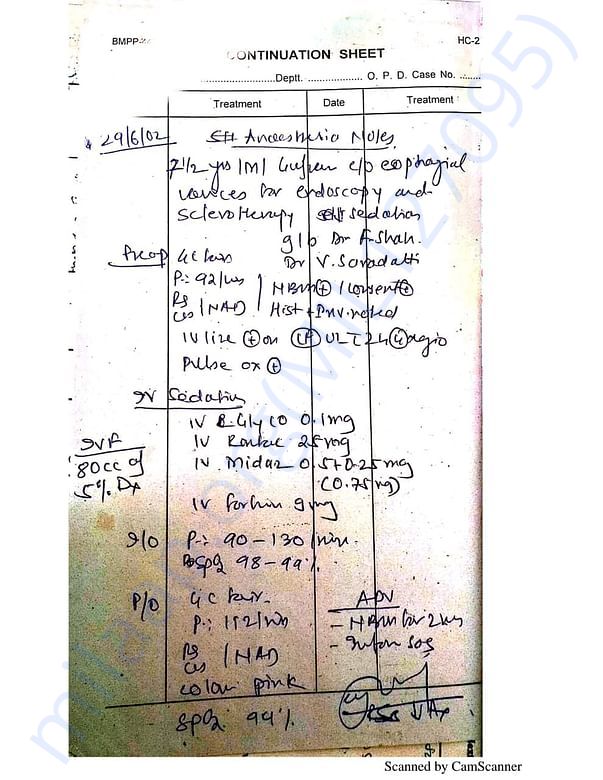 BMPP
HC-2
CONTINUATION SHEET
Deptt. O. P. D. Case No.
Treatment Date Treatment
29/6/02 Anaesthetic Notes
7 1/2 yrs /M/ c/o esophagial
varices for endoscopy and
sclerotherapy sedation
g/b Dr F. Shah.
Preop GC fair Dr V.
P: 92/min NBM + / Consent +
RS CVS / NAD Hist + Inv. noted
IV line + on
Pulse ox +
IV Sedation
IV Glyco 0.1mg
IV Rantac 25mg
IVF IV Midaz 0.5+0.25 mg
80cc of (0.75 mg)
5% Dx
IV 9mg
I/O P: 90 - 130/min.
SpO2 98-99%.
P/O GC fair. ADV
P: 112/min - NBM for 2 hrs
RS CVS / NAD - Inform sos
colour pink
SpO2 99%
Scanned by CamScanner